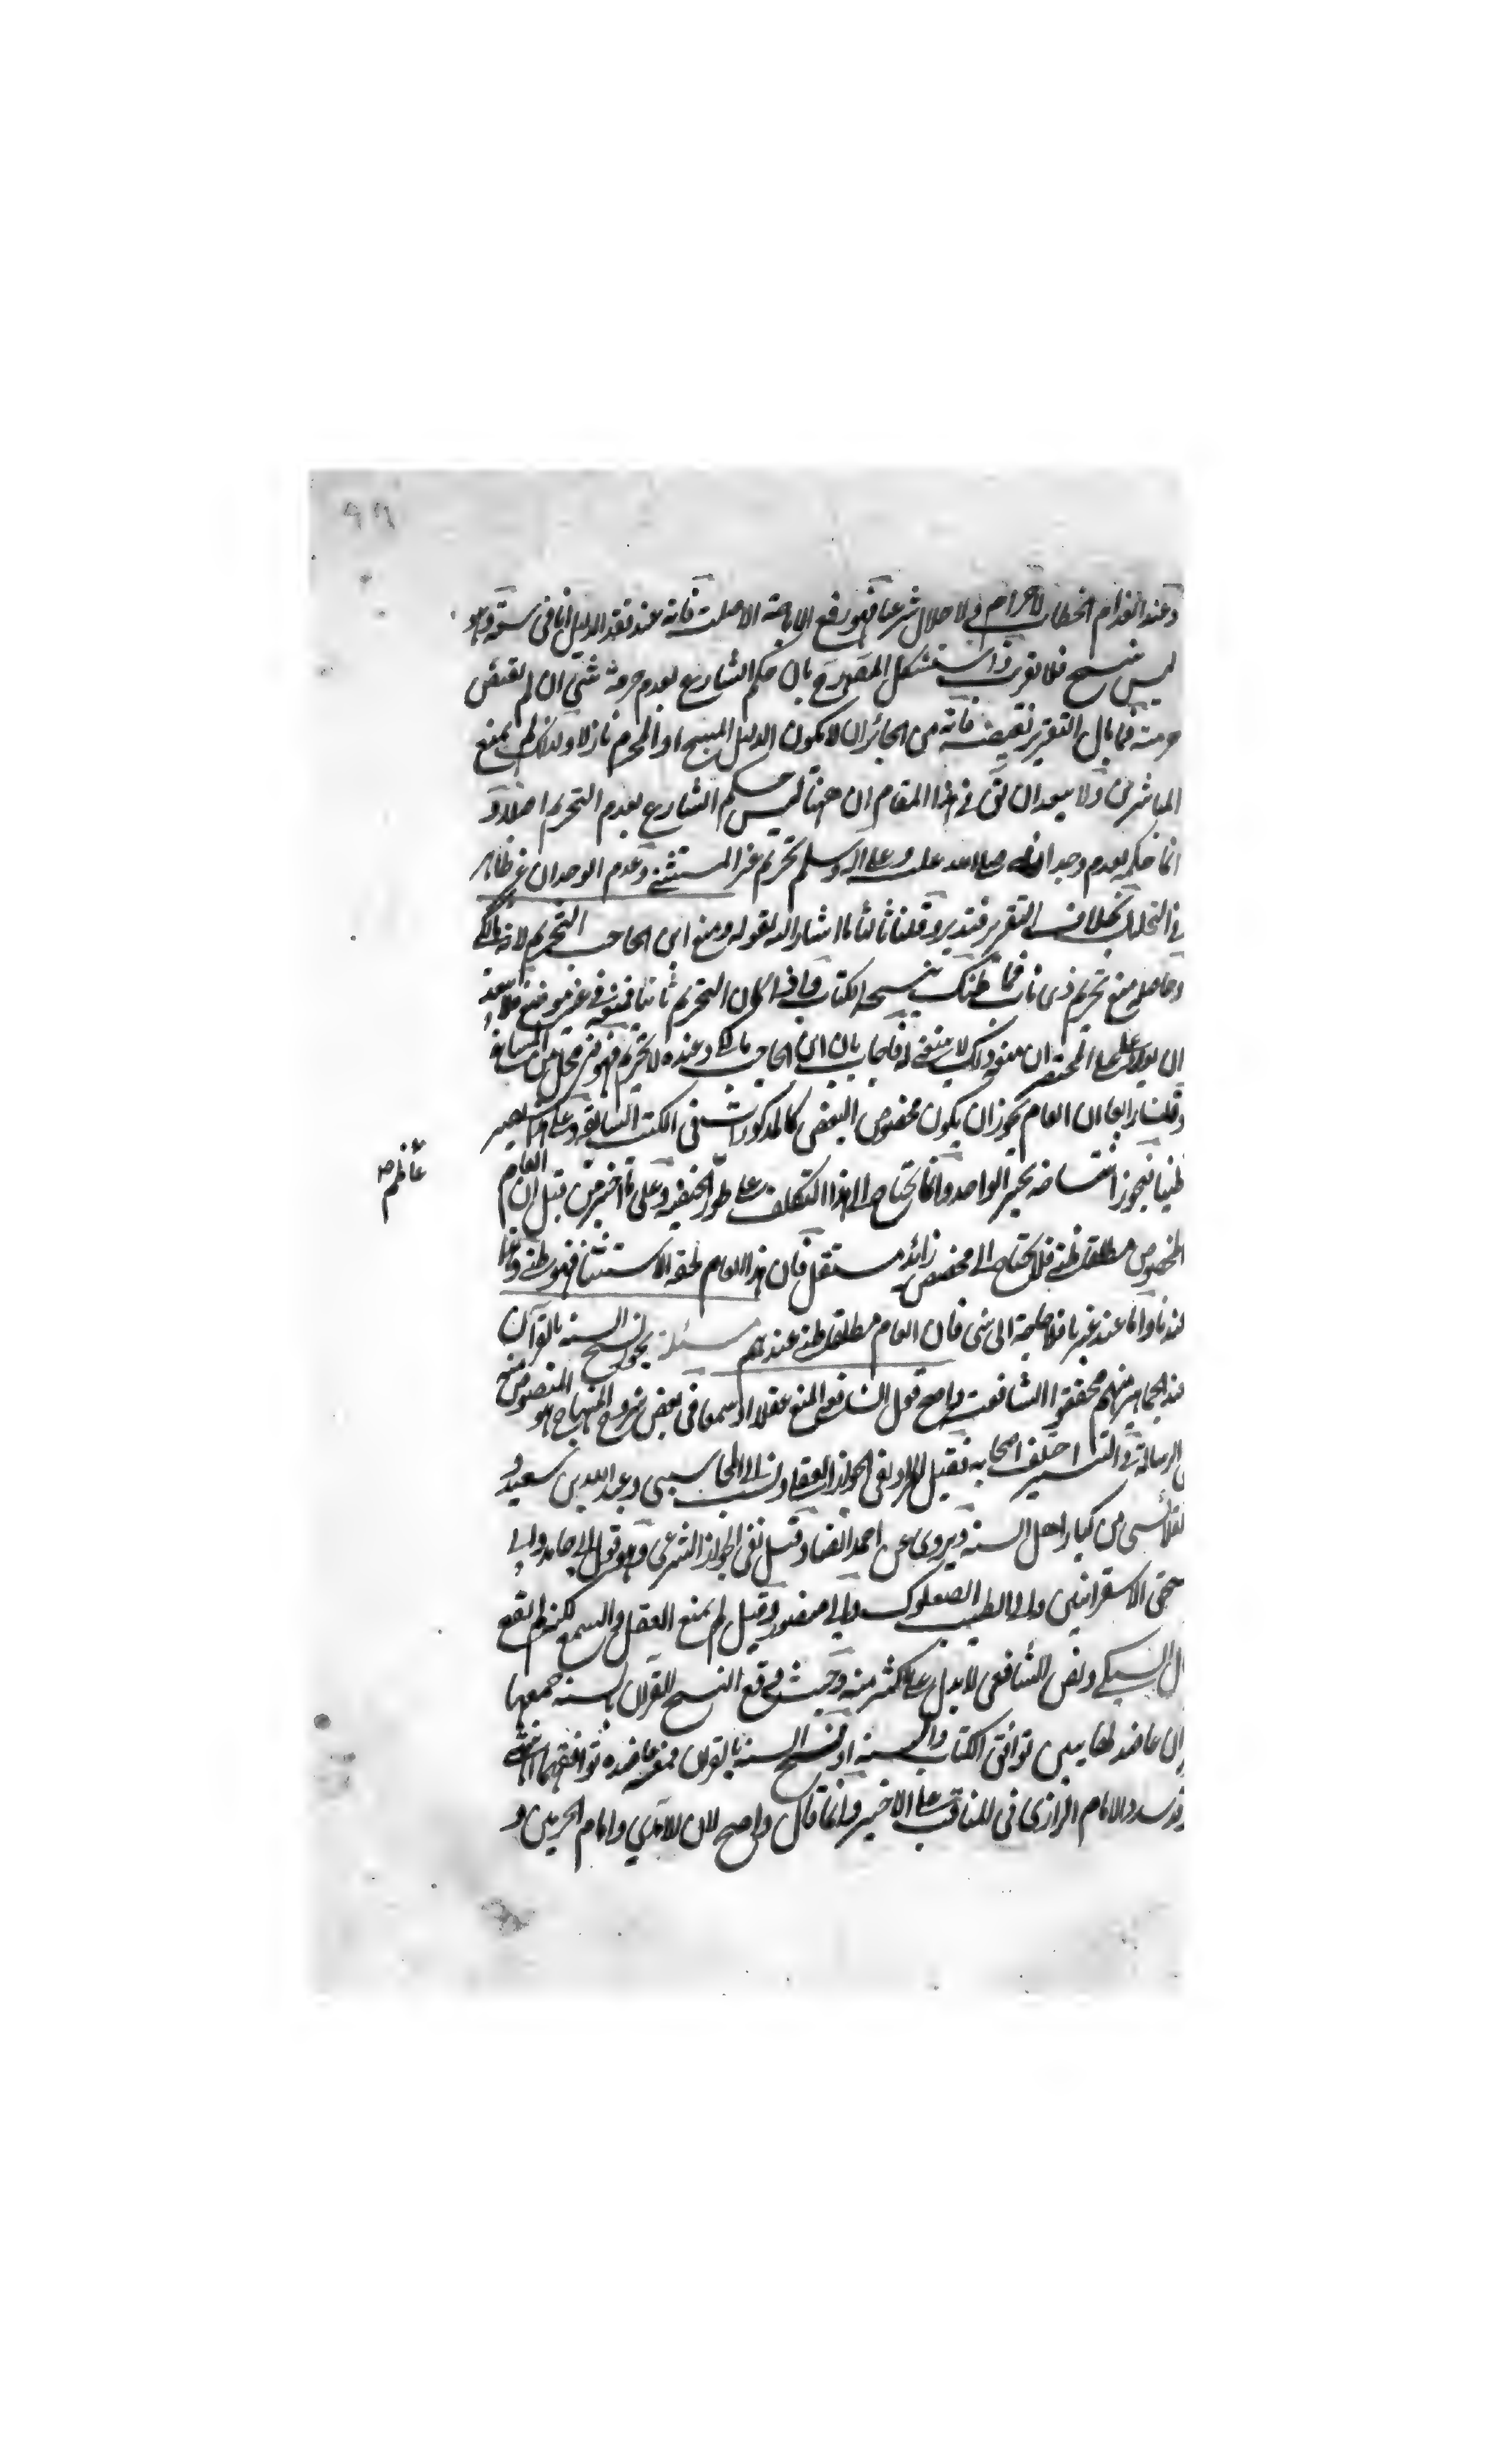 وعند انعدام الخطاب لا حرام ولا حلال شرعا فهو رفع الاباحة الاصلية فانه عند فقد الدليل وهو
ليس بنسخ فلا تقريب استشكل المصرح بان حكم الشارع بعدم حرمة شئ ان لم يقتض
حرمته فما بال التقرير فانه من الجائز ان لا يكون الدليل المبيح او المحرم نازلا ولذلك لم يمنع
المباشرين ولا يبعد ان يق في هذا المقام ان ههنا ليس حكم الشارع بعدم التحريم اصلا و
انما حكمه بعدم وجدانه صلى الله عليه وعلى اله وسلم تحريم غير المستثنى وعدم الوجدان غير ظاهر
في التحليل بخلاف التقرير فتدبر وقلنا ثالثا ما اشار اليه بقوله ومنع ابن الحاجب التحريم لانه مالكي
وحاصله منع تحريم ذي ناب فما ظنك بنسخه الكتاب واذا كان التحريم ثابتا فمنعه في غير موضعه
ان يورد على المختصر ان منع ذلك لا ينفع فاجاب بان ابن الحاجب مالكي وعنده لا تحريم فهو
وقلنا رابعا ان العام يجوز ان يكون مخصوص البعض كالمذكورات في الكتب السابقة وعلى هذا يصير
ظنيا فيجوز انتساخه بخبر الواحد وانما يحتاج الى هذا التكلف على طور الحنفية وعلى تأخير من قبل ان العام
المخصوص مطلقا ظني فلا يحتاج الى مخصص زائد مستقل فان هذا العام لحقه الاستثناء فهو ظني
عندنا واما عند غيرنا فلا حاجة الى شئ فان العام مطلقا ظني عندهم مسئلة يجوز نسخ السنة بالقرآن
عند الجماهير منهم محققوا الشافعية واصح قول الشافعي المنع عقلا او سمعا في بعض شروح المنهاج هو المنصوص منه
في الرسالة في التيسير اختلف اصحابه فقيل المراد نفي الجواز العقلي ونسب الى المحاسبي وعبد الله بن سعيد و
القلانسي من كبار اهل السنة ويروى عن احمد ايضا وقيل نفي الجواز الشرعي وهو قول ابي حامد وابي
اسحق الاسفرائيني وابي الطيب الصعلوكي وابي منصور وقيل لم يمنع العقل والسمع لكنه لم يقع
قال السبكي ونص الشافعي لا يدل على اكثر منه وحيث وقع النسخ للقرآن بالسنة فمعها
قرآن عاضد لها يبين توافق الكتاب والسنة او نسخ السنة بالقرآن فمعه عاضدة توافقهما انتهى
وقد سرد الامام الرازي في المناقب على الاخير وانما قال واصح لان الآمدي وامام الحرمين و